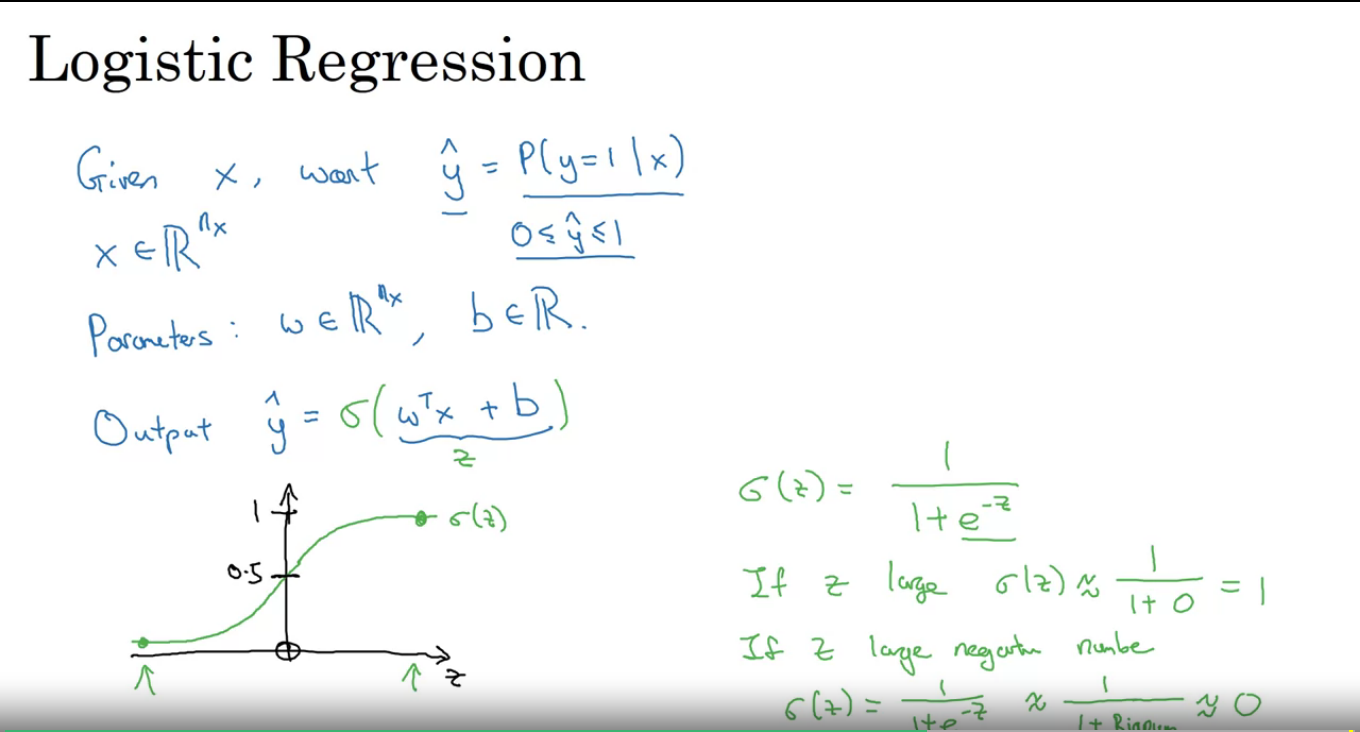 Logistic Regression
Given x, want ŷ = P(y=1|x)
x ∈ ℝ^nx
0 ≤ ŷ ≤ 1
Parameters: w ∈ ℝ^nx, b ∈ ℝ.
Output ŷ = σ(wᵀx + b)
z
1
σ(z)
0.5
z
σ(z) = 1 / (1 + e^-z)
If z large σ(z) ≈ 1 / (1 + 0) = 1
If z large negative numbe
σ(z) = 1 / (1 + e^-z) ≈ 1 / (1 + Bignum) ≈ 0